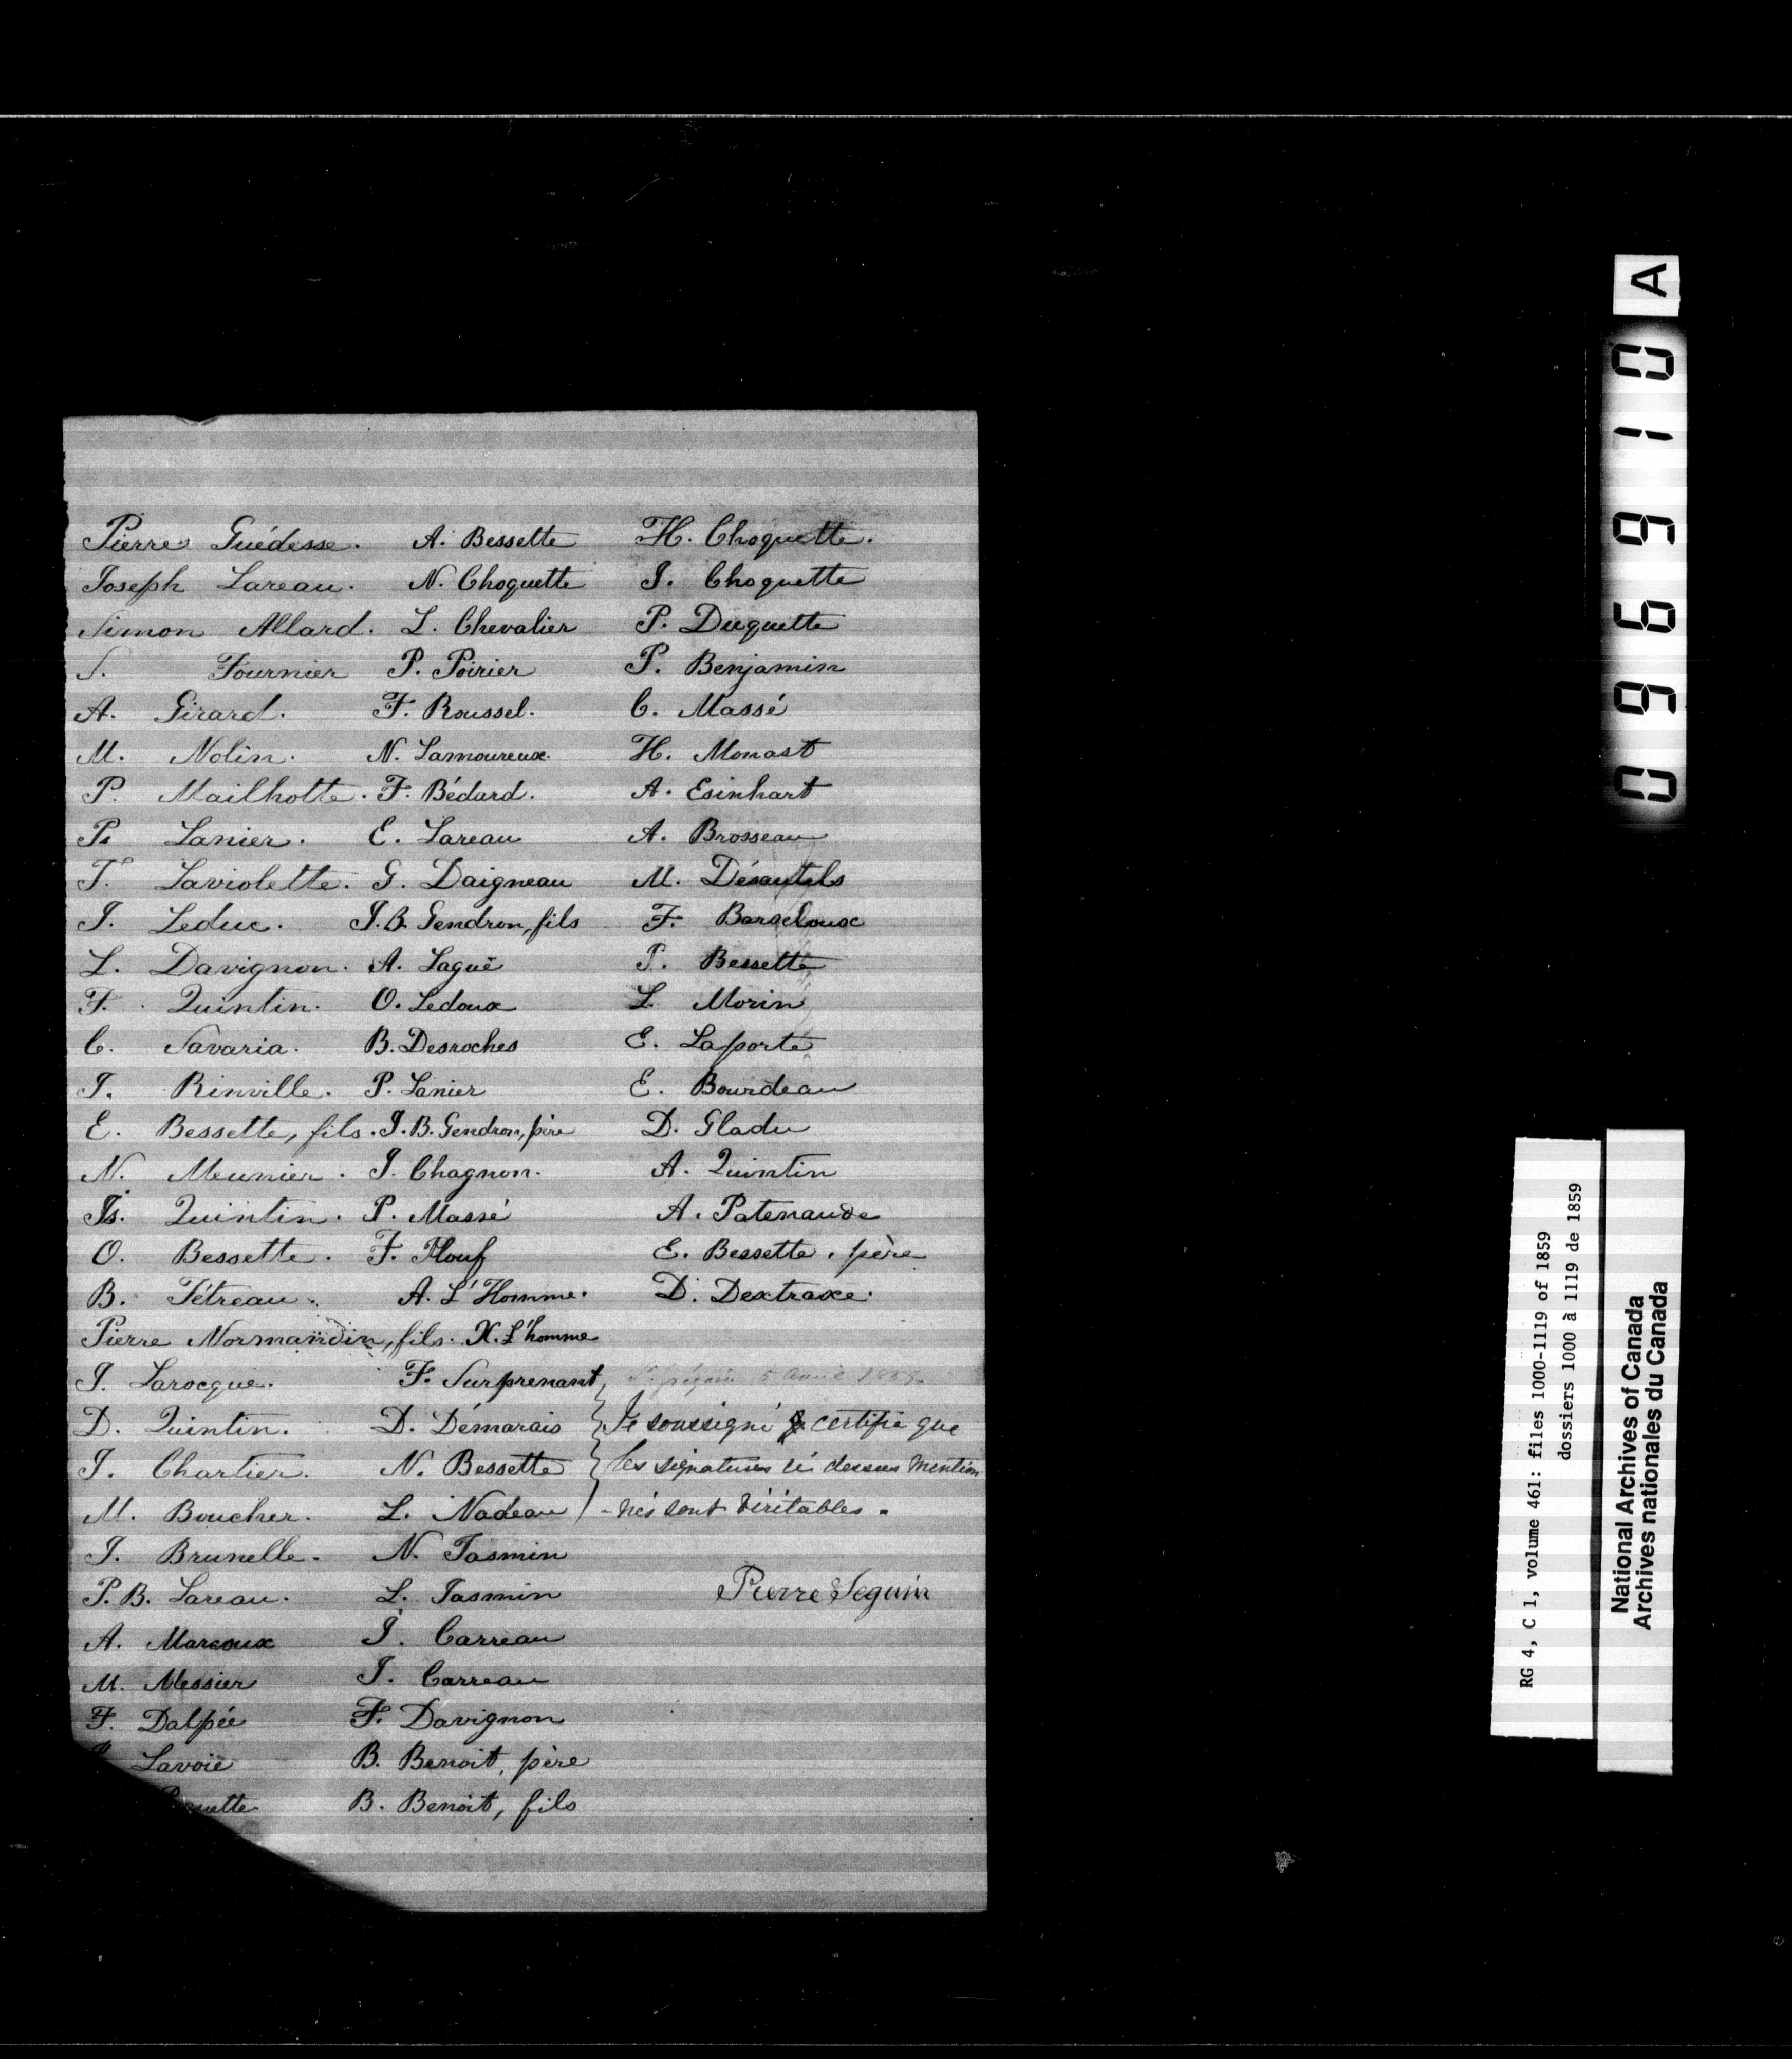 Pierre Guédesse. A. Bessette H. Choquette.
Joseph Lareau. N. Choquette J. Choquette
Simon Allard. L. Chevalier P. Duquette
S. Fournier P. Poirier P. Benjamin
A. Girard. F. Roussel. C. Massé
M. Nolin. N. Lamoureux. H. Monast
P. Mailhotte. F. Bédard. A. Esinhart
P. Lanier. E. Lareau A. Brosseau
T. Laviolette. G. Daigneau M. Désautels
J. Leduc. J.B. Gendron, fils F. Barseloux
L. Davignon. A. Laguë P. Bessette
F. Quintin. O. Ledoux L. Morin
C. Savaria. B. Desroches E. Laporte
J. Rinville. P. Lanier E. Bourdeau
E. Bessette, fils. J.B. Gendron, père D. Gladu
N. Meunier. J. Chagnon. A. Quintin
Js. Quintin. P. Massé A. Patenaude
O. Bessette. F. Plouf E. Bessette, père
B. Tétreau. A. L'Homme. D. Dextraxe.
Pierre Normandin, fils. X. L'homme
J. Larocque. F. Surprenant,
D. Quintin. D. Démarais Je soussigné certifie que
J. Chartier. N. Bessette les signatures ci dessus mention
M. Boucher. L. Nadeau -nés sont véritables.
J. Brunelle. N. Jasmin
P.B. Lareau. L. Jasmin Pierre Seguin
A. Marcoux J. Carreau
M. Messier J. Carreau
F. Dalpée F. Davignon
Lavoie B. Benoit, père
B. Benoit, fils
A
096910
RG 4, C 1, volume 461: files 1000-1119 of 1859
dossiers 1000 à 1119 de 1859
National Archives of Canada
Archives nationales du Canada